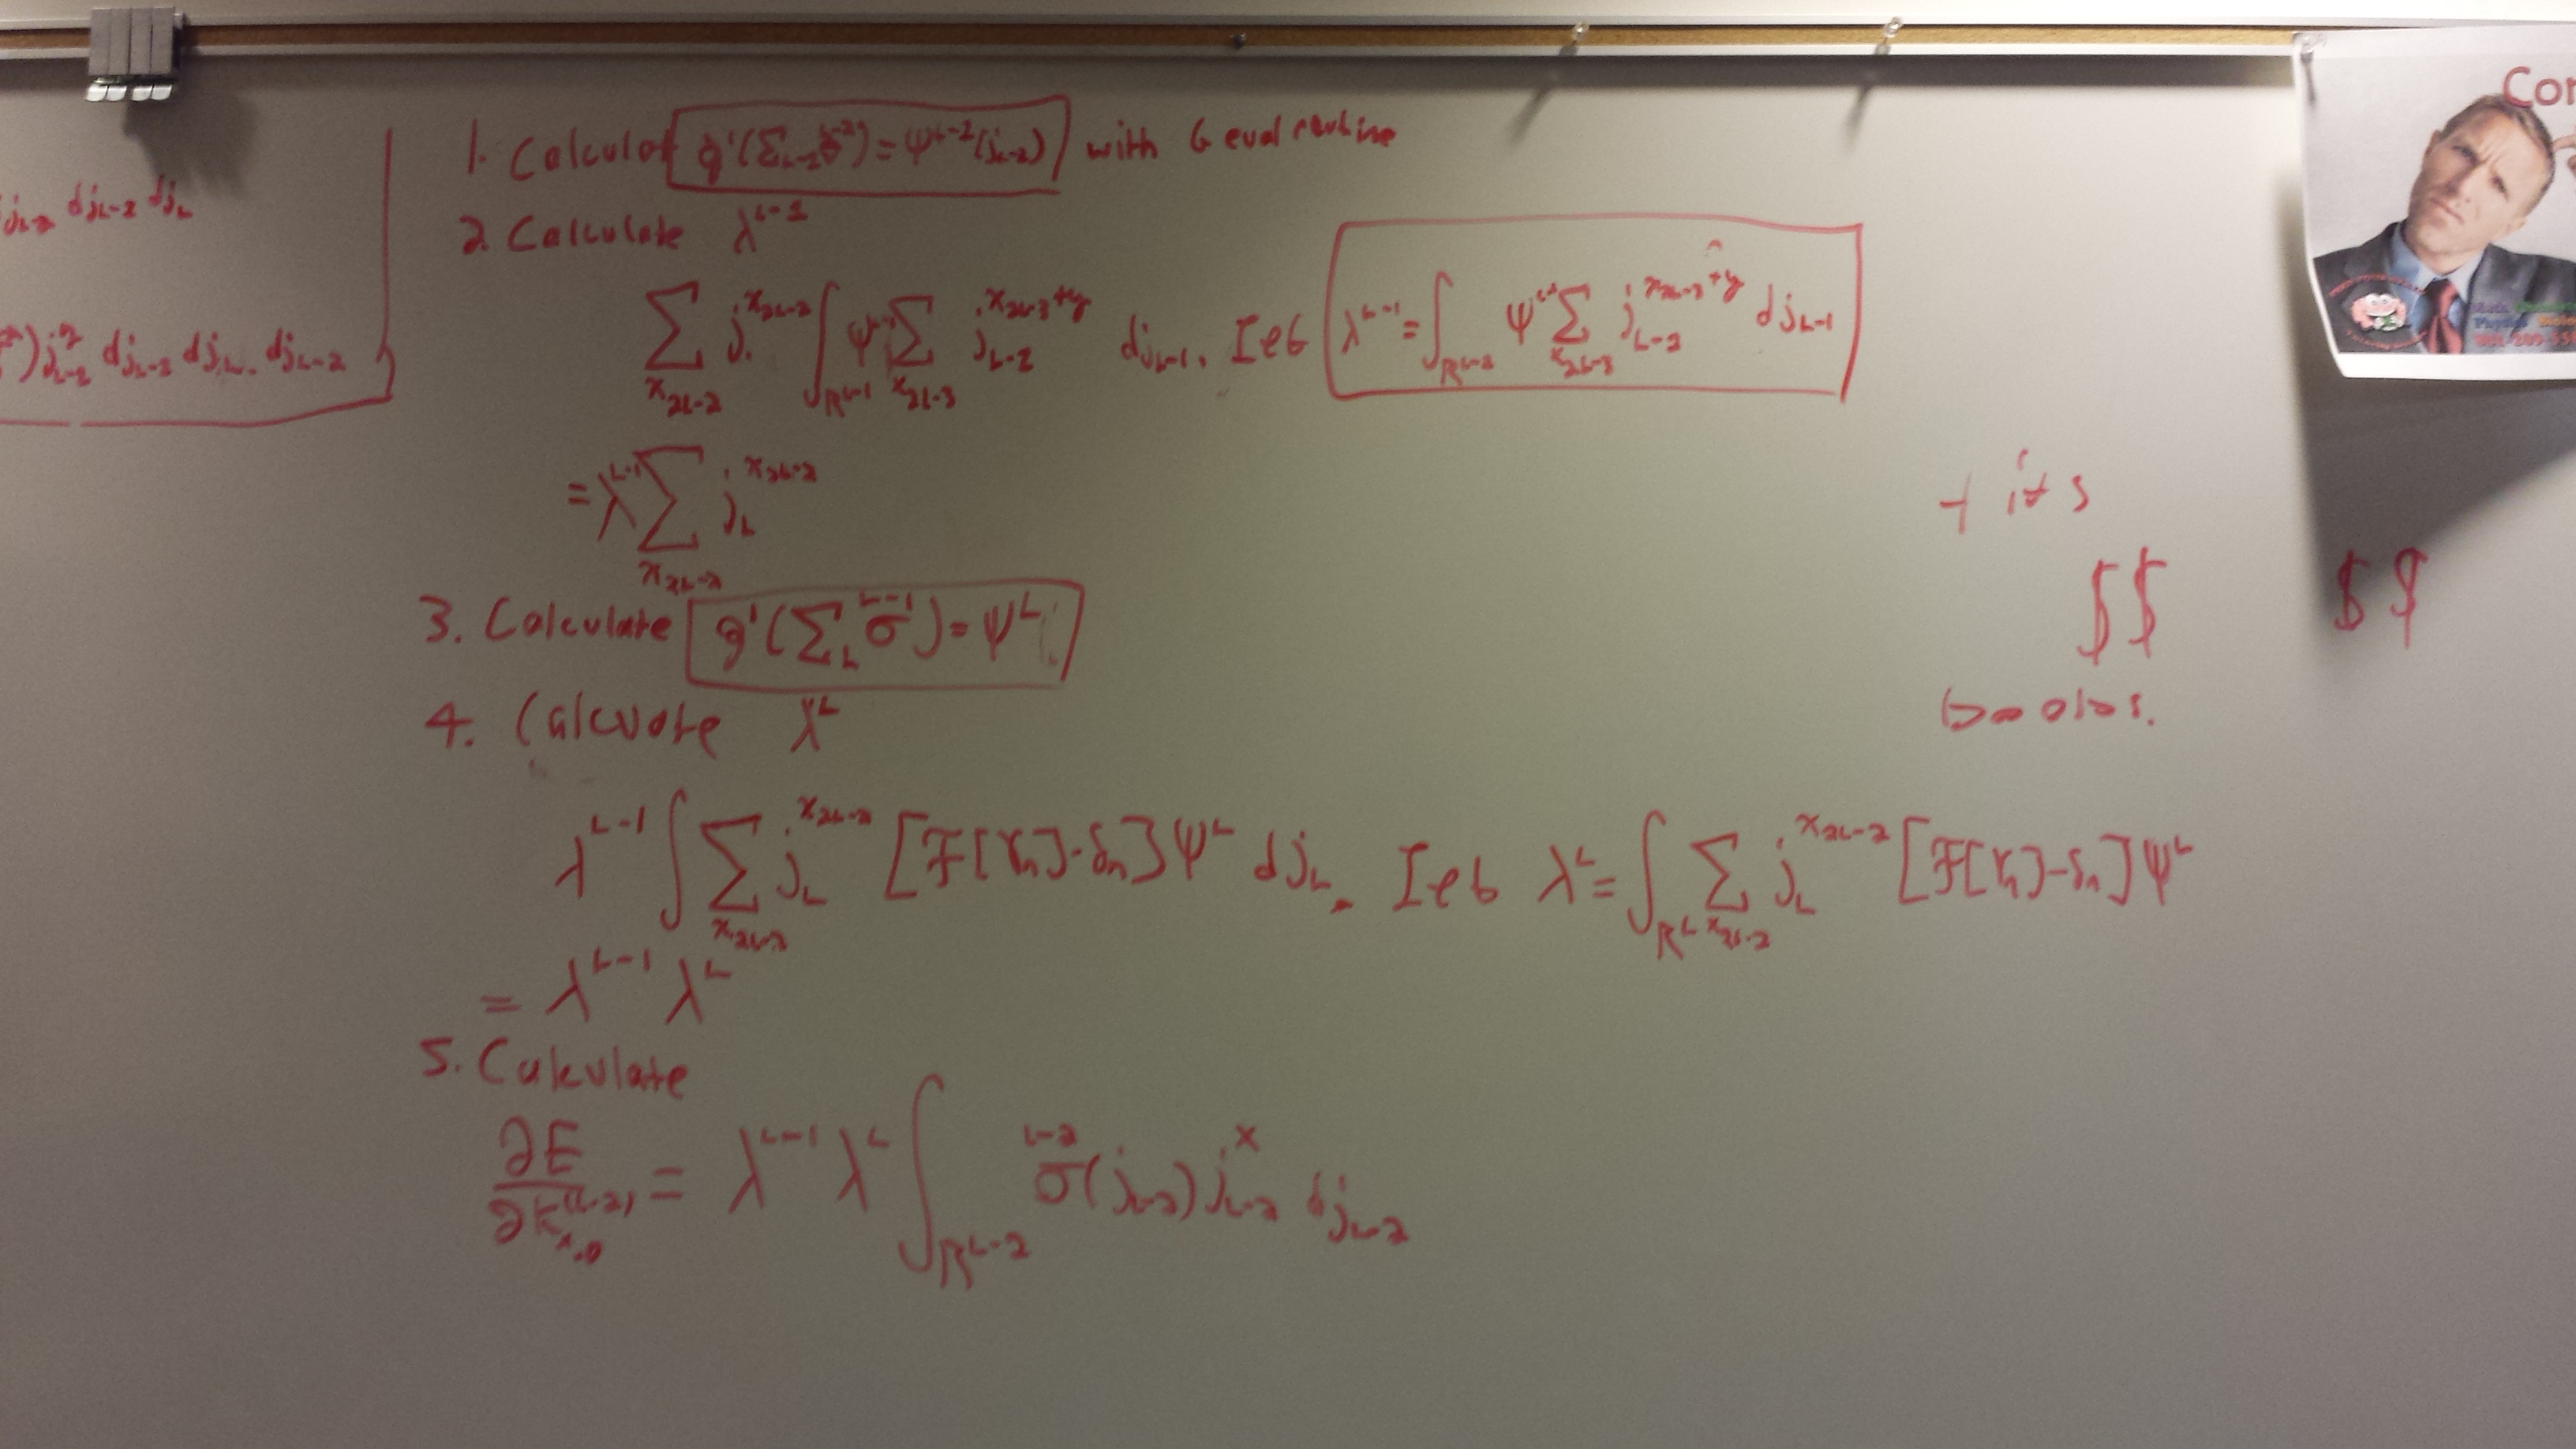 j_{L-2} dj_{L-2} dj_L
)j_{L-2} dj_{L-2} dj_L dj_{L-2}
1. Calculat g'(Σ_{L-2} σ) = Ψ^{L-1}(j_{L-2}) with G eval routine
2. Calculate λ^{L-1}
Σ_{x_{2L-2}} j^{x_{2L-2}} ∫_{R^{L-1}} Ψ Σ_{x_{2L-3}} j_{L-2}^{x_{2L-3}+y} dj_{L-1}. Let λ^{L-1} = ∫_{R^{L-2}} Ψ Σ_{x_{2L-3}} j_{L-2}^{x_{2L-3}+y} dj_{L-1}
= λ^{L-1} Σ_{x_{2L-2}} j_L^{x_{2L-2}}
3. Calculate g'(Σ_L σ^{L-1}) = Ψ^L
4. Calcuate λ^L
λ^{L-1} ∫ Σ_{x_{2L-3}} j_L^{x_{2L-2}} [F[γ_n]-δ_n] Ψ^L dj_L. Let λ^L = ∫_{R^L} Σ_{x_{2L-2}} j_L^{x_{2L-2}} [F[γ_n]-δ_n] Ψ^L
= λ^{L-1} λ^L
5. Calculate
∂E/∂K_{x,0}^{(L-2)} = λ^{L-1} λ^L ∫_{R^{L-2}} σ^{L-2}(j_{L-2}) j_{L-2}^x dj_{L-2}
its
$$ $$
Con